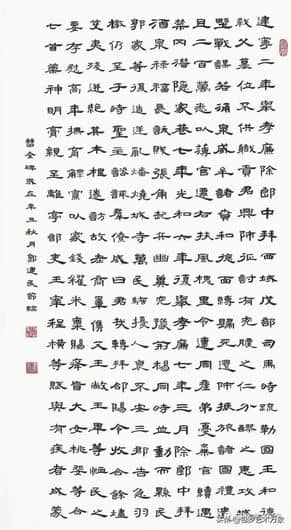 建寧二年舉孝廉除郎中拜西域戊部司馬時疏勒國王和德
弒父篡位不供職貢君興師征討有吮膿之仁分醪之惠攻城
野戰謀若涌泉威牟諸賁和德面縛歸死還師振旅諸國禮遺
且二百萬悉以薄官遷右扶風槐里令遭同產弟憂棄官續遇
禁冈潛隱家巷七年光和六年復舉孝廉七年三月除郎中拜
酒泉祿福長訞賊張角起兵幽冀兗豫荊楊同時並動而縣民
郭家等復造逆亂燔燒城寺萬民騷擾人裹不安三郡告急羽
檄仍至于時聖主諮諏群僚咸曰君哉轉拜郃陽令收合餘燼
芟夷殘迸絕其本根遂訪故老商量儁艾王敞王畢等恤民之
要存慰高年撫育鰥寡以家錢糴米粟賜癃盲大女桃婓等合
七首藥神明膏親至離亭部吏王宰程橫等賦與有疾者咸蒙
曹全碑歲在辛丑秋月郭建民節臨
头条